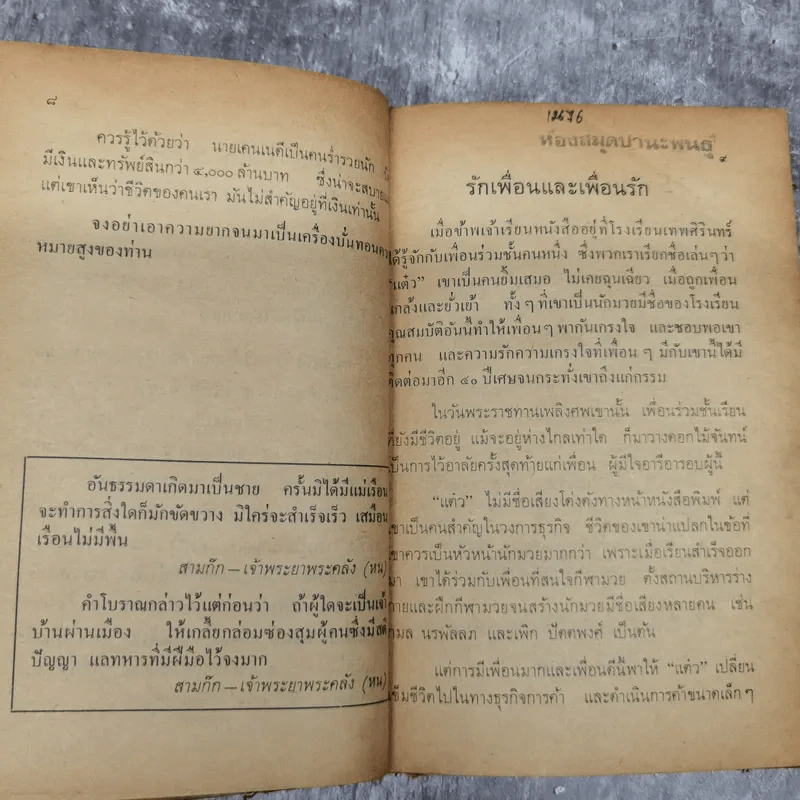 ๘
ควรรู้ไว้ด้วยว่า นายเคนเนดีเป็นคนร่ำรวยนัก
มีเงินและทรัพย์สินกว่า ๔,๐๐๐ ล้านบาท ซึ่งน่าจะสบาย
แต่เขาเห็นว่าชีวิตของคนเรา มันไม่สำคัญอยู่ที่เงินเท่านั้น
จงอย่าเอาความยากจนมาเป็นเครื่องบั่นทอน
หมายสูงของท่าน
อันธรรมดาเกิดมาเป็นชาย ครั้นมิได้มีแม่เรือน
จะทำการสิ่งใดก็มักขัดขวาง มิใคร่จะสำเร็จเร็ว เสมือน
เรือนไม่มีพื้น
สามก๊ก — เจ้าพระยาพระคลัง (หน)
คำโบราณกล่าวไว้แต่ก่อนว่า ถ้าผู้ใดจะเป็นเจ้า
บ้านผ่านเมือง ให้เกลี้ยกล่อมซ่องสุมผู้คนซึ่งมีสติ
ปัญญา แลทหารที่มีฝีมือไว้จงมาก
สามก๊ก — เจ้าพระยาพระคลัง (หน)
ห้องสมุดปานะพนธุ์
๙
รักเพื่อนและเพื่อนรัก
เมื่อข้าพเจ้าเรียนหนังสืออยู่ที่โรงเรียนเทพศิรินทร์
ได้รู้จักกับเพื่อนร่วมชั้นคนหนึ่ง ซึ่งพวกเราเรียกชื่อเล่นๆว่า
“แต๋ว” เขาเป็นคนยิ้มเสมอ ไม่เคยฉุนเฉียว เมื่อถูกเพื่อน
แกล้งและยั่วเย้า ทั้ง ๆ ที่เขาเป็นนักมวยมีชื่อของโรงเรียน
คุณสมบัติอันนี้ทำให้เพื่อน ๆ พากันเกรงใจ และชอบพอเขา
ทุกคน และความรักความเกรงใจที่เพื่อน ๆ มีกับเขานี้ได้มี
ติดต่อมาอีก ๔๐ ปีเศษจนกระทั่งเขาถึงแก่กรรม
ในวันพระราชทานเพลิงศพเขานั้น เพื่อนร่วมชั้นเรียน
ที่ยังมีชีวิตอยู่ แม้จะอยู่ห่างไกลเท่าใด ก็มาวางดอกไม้จันทน์
เป็นการไว้อาลัยครั้งสุดท้ายแก่เพื่อน ผู้มีใจอารีอารอบผู้นี้
“แต๋ว” ไม่มีชื่อเสียงโด่งดังทางหน้าหนังสือพิมพ์ แต่
เขาเป็นคนสำคัญในวงการธุรกิจ ชีวิตของเขาน่าแปลกในข้อที่
เขาควรเป็นหัวหน้านักมวยมากกว่า เพราะเมื่อเรียนสำเร็จออก
มา เขาได้ร่วมกับเพื่อนที่สนใจกีฬามวย ตั้งสถานบริหารร่าง
กายและฝึกกีฬามวยจนสร้างนักมวยมีชื่อเสียงหลายคน เช่น
นรพัลลภ และเพิก ปัตตพงศ์ เป็นต้น
แต่การมีเพื่อนมากและเพื่อนดีนี้พาให้ “แต๋ว” เปลี่ยน
เข็มชีวิตไปในทางธุรกิจการค้า และดำเนินการค้าขนาดเล็กๆ